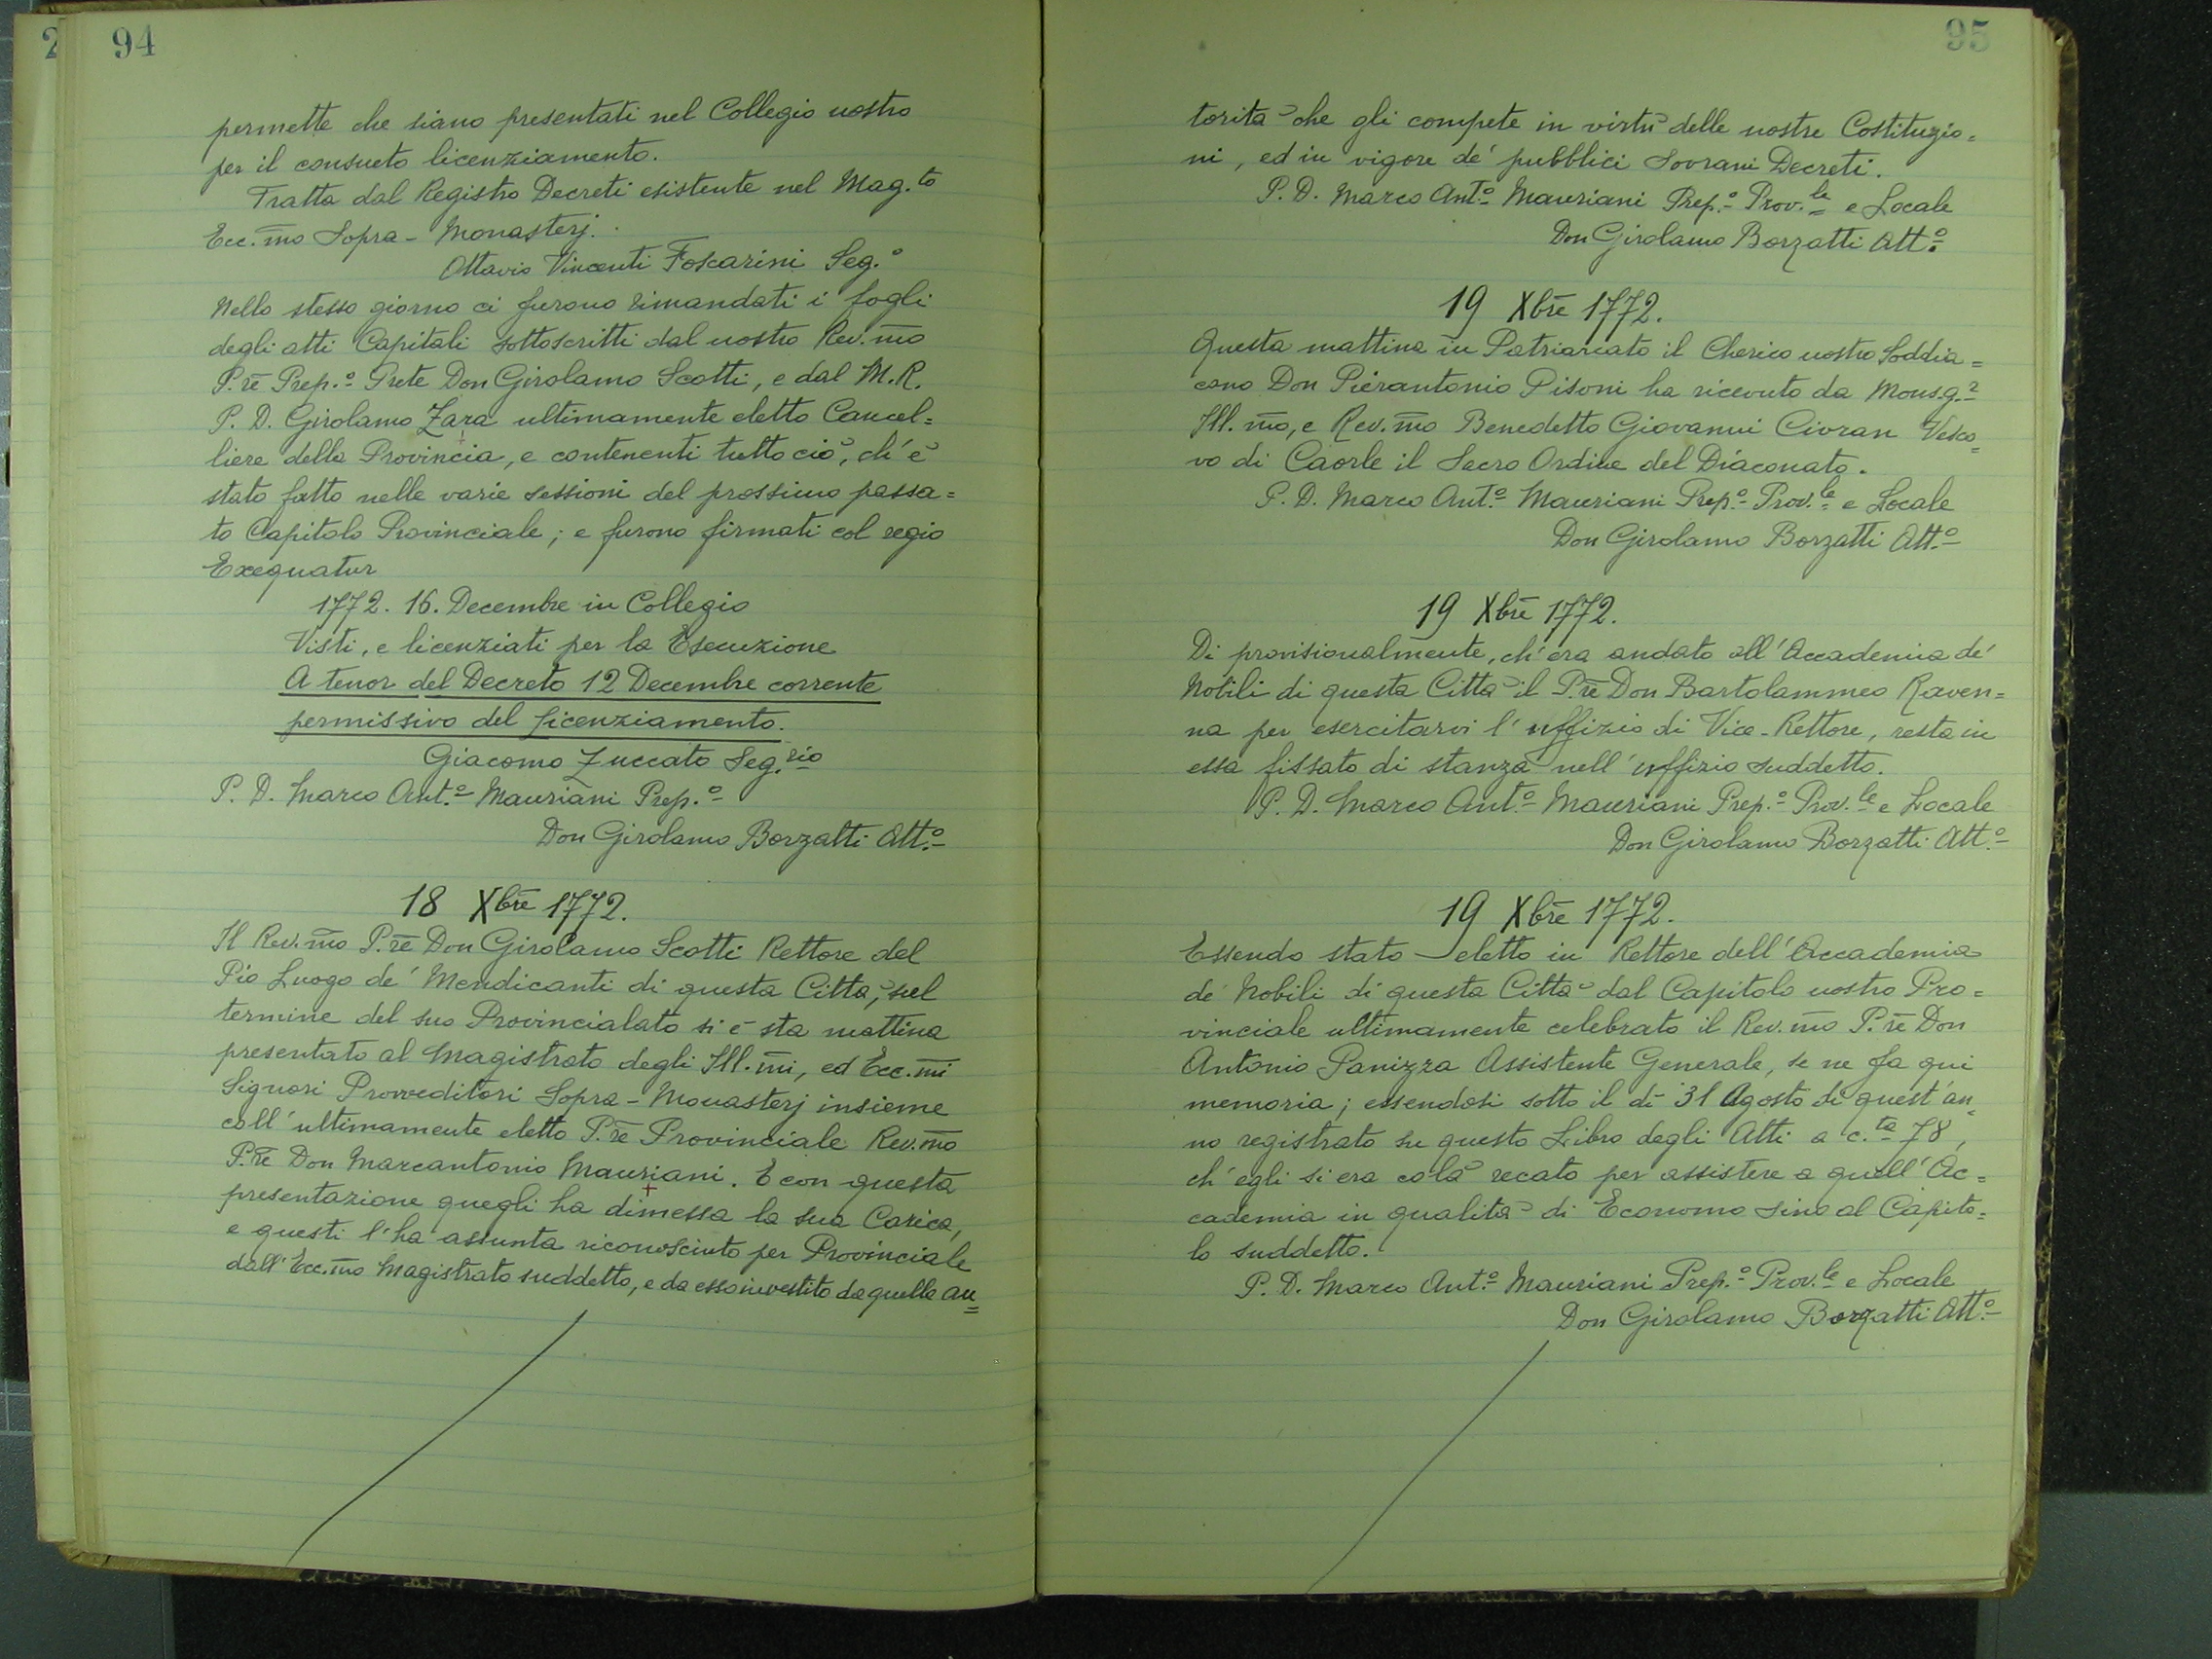 94
permette che siano presentati nel Collegio nostro
per il consueto licenziamento.
Tratta dal Registro Decreti esistente nel Mag.to
Ecc.mo Sopra-Monasterj.
Ottavio Vincenti Foscarini Seg.o
Nello stesso giorno ci furono rimandati i fogli
degli atti Capitali sottoscritti dal nostro Rev.mo
P.re Prep.o Prete Don Girolamo Scotti, e dal M.R.
P. D. Girolamo Zara ultimamente eletto Cancel=
liere della Provincia, e contenenti tutto ciò, ch'è
stato fatto nelle varie sessioni del prossimo passa=
to Capitolo Provinciale; e furono firmati col regio
Exequatur
1772. 16. Decembre in Collegio
Visti, e licenziati per la Esecuzione
A tenor del Decreto 12 Decembre corrente
permissivo del licenziamento.
Giacomo Zuccato Seg.rio
P. D. Marco Ant.o Mauriani Prep.o
Don Girolamo Borzatti Att.o
18 Xbre 1772.
Il Rev.mo P.re Don Girolamo Scotti Rettore del
Pio Luogo de' Mendicanti di questa Città, sul
termine del suo Provincialato si è sta mattina
presentato al Magistrato degli Ill.mi, ed Ecc.mi
Signori Provveditori Sopra-Monasterj insieme
coll'ultimamente eletto P.re Provinciale Rev.mo
P.re Don Marcantonio Mauriani. E con questa
presentazione quegli ha dimessa la sua Carica,
e questi l'ha assunta riconosciuto per Provinciale
dall'Ecc.mo Magistrato suddetto, e da esso investito da quella au=
95
torità che gli compete in virtù delle nostre Costituzio=
ni, ed in vigore de' pubblici Sovrani Decreti.
P. D. Marco Ant.o Mauriani Prep.o Prov.le e Locale
Don Girolamo Borzatti Att.o
19 Xbre 1772.
Questa mattina in Patriarcato il Cherico nostro Soddia=
cono Don Pierantonio Pisoni ha ricevuto da Mons.g.r
Ill.mo, e Rev.mo Benedetto Giovanni Civran Vesco=
vo di Caorle il Sacro Ordine del Diaconato.
P. D. Marco Ant.o Mauriani Prep.o Prov.le e Locale
Don Girolamo Borzatti Att.o
19 Xbre 1772.
Di provisionalmente, ch'era andato all'Accademia de'
Nobili di questa Città il P.re Don Bartolammeo Raven=
na per esercitarvi l'uffizio di Vice-Rettore, resta in
essa fissato di stanza nell'uffizio suddetto.
P. D. Marco Ant.o Mauriani Prep.o Prov.le e Locale
Don Girolamo Borzatti Att.o
19 Xbre 1772.
Essendo stato eletto in Rettore dell'Accademia
de' Nobili di questa Città dal Capitolo nostro Pro=
vinciale ultimamente celebrato il Rev.mo P.re Don
Antonio Panizza Assistente Generale, se ne fa qui
memoria; essendosi sotto il dì 31 Agosto di quest'an=
no registrato su questo Libro degli Atti a c.ta 78,
ch'egli si era colà recato per assistere a quell'Ac=
cademia in qualità di Economo sino al Capito=
lo suddetto.
P. D. Marco Ant.o Mauriani Prep.o Prov.le e Locale
Don Girolamo Borzatti Att.o